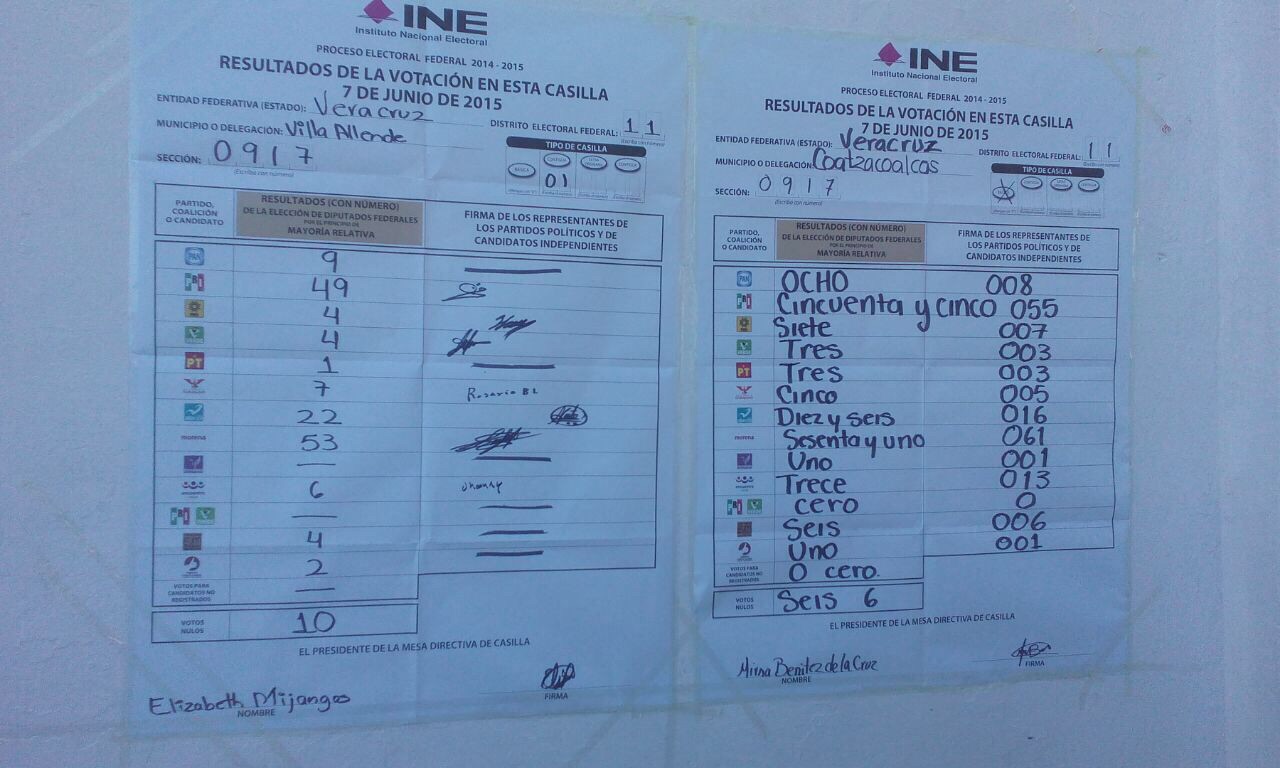 INE
Instituto Nacional Electoral
PROCESO ELECTORAL FEDERAL 2014 - 2015
RESULTADOS DE LA VOTACIÓN EN ESTA CASILLA
7 DE JUNIO DE 2015
ENTIDAD FEDERATIVA (ESTADO): Veracruz
MUNICIPIO O DELEGACIÓN: Villa Allende
DISTRITO ELECTORAL FEDERAL: 11
(Escriba con número)
SECCIÓN: 0917
(Escriba con número)
TIPO DE CASILLA
BÁSICA CONTIGUA
01
PARTIDO, COALICIÓN O CANDIDATO
RESULTADOS (CON NÚMERO)
DE LA ELECCIÓN DE DIPUTADOS FEDERALES
POR EL PRINCIPIO DE
MAYORÍA RELATIVA
FIRMA DE LOS REPRESENTANTES DE
LOS PARTIDOS POLÍTICOS Y DE
CANDIDATOS INDEPENDIENTES
PAN 9
PRI 49
4
4
PT 1
7 Rosario BL
22
morena 53
—
encuentro 6 Jhonny
PRI —
4
2
VOTOS PARA CANDIDATOS NO REGISTRADOS —
VOTOS NULOS 10
EL PRESIDENTE DE LA MESA DIRECTIVA DE CASILLA
Elizabeth Mijangos
NOMBRE
FIRMA
INE
Instituto Nacional Electoral
PROCESO ELECTORAL FEDERAL 2014 - 2015
RESULTADOS DE LA VOTACIÓN EN ESTA CASILLA
7 DE JUNIO DE 2015
ENTIDAD FEDERATIVA (ESTADO): Veracruz
MUNICIPIO O DELEGACIÓN: Coatzacoalcos
DISTRITO ELECTORAL FEDERAL: 11
(Escriba con número)
SECCIÓN: 0917
(Escriba con número)
TIPO DE CASILLA
X
PARTIDO, COALICIÓN O CANDIDATO
RESULTADOS (CON NÚMERO)
DE LA ELECCIÓN DE DIPUTADOS FEDERALES
POR EL PRINCIPIO DE
MAYORÍA RELATIVA
FIRMA DE LOS REPRESENTANTES DE
LOS PARTIDOS POLÍTICOS Y DE
CANDIDATOS INDEPENDIENTES
PAN OCHO 008
PRI Cincuenta y cinco 055
Siete 007
Tres 003
PT Tres 003
Cinco 005
Diez y seis 016
morena Sesenta y uno 061
Uno 001
encuentro Trece 013
PRI cero 0
Seis 006
Uno 001
VOTOS PARA CANDIDATOS NO REGISTRADOS 0 cero.
VOTOS NULOS Seis 6
EL PRESIDENTE DE LA MESA DIRECTIVA DE CASILLA
Mirna Benitez de la Cruz
NOMBRE
FIRMA